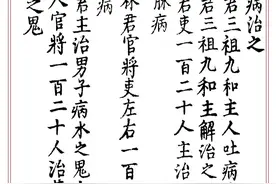 病治之
君三祖九和主人吐病
君三祖九和主解治之
右吏一百二十人主治
脉病
林君官將吏左右一百
病
君主治男子病水之鬼
人官將一百二十人治
之鬼